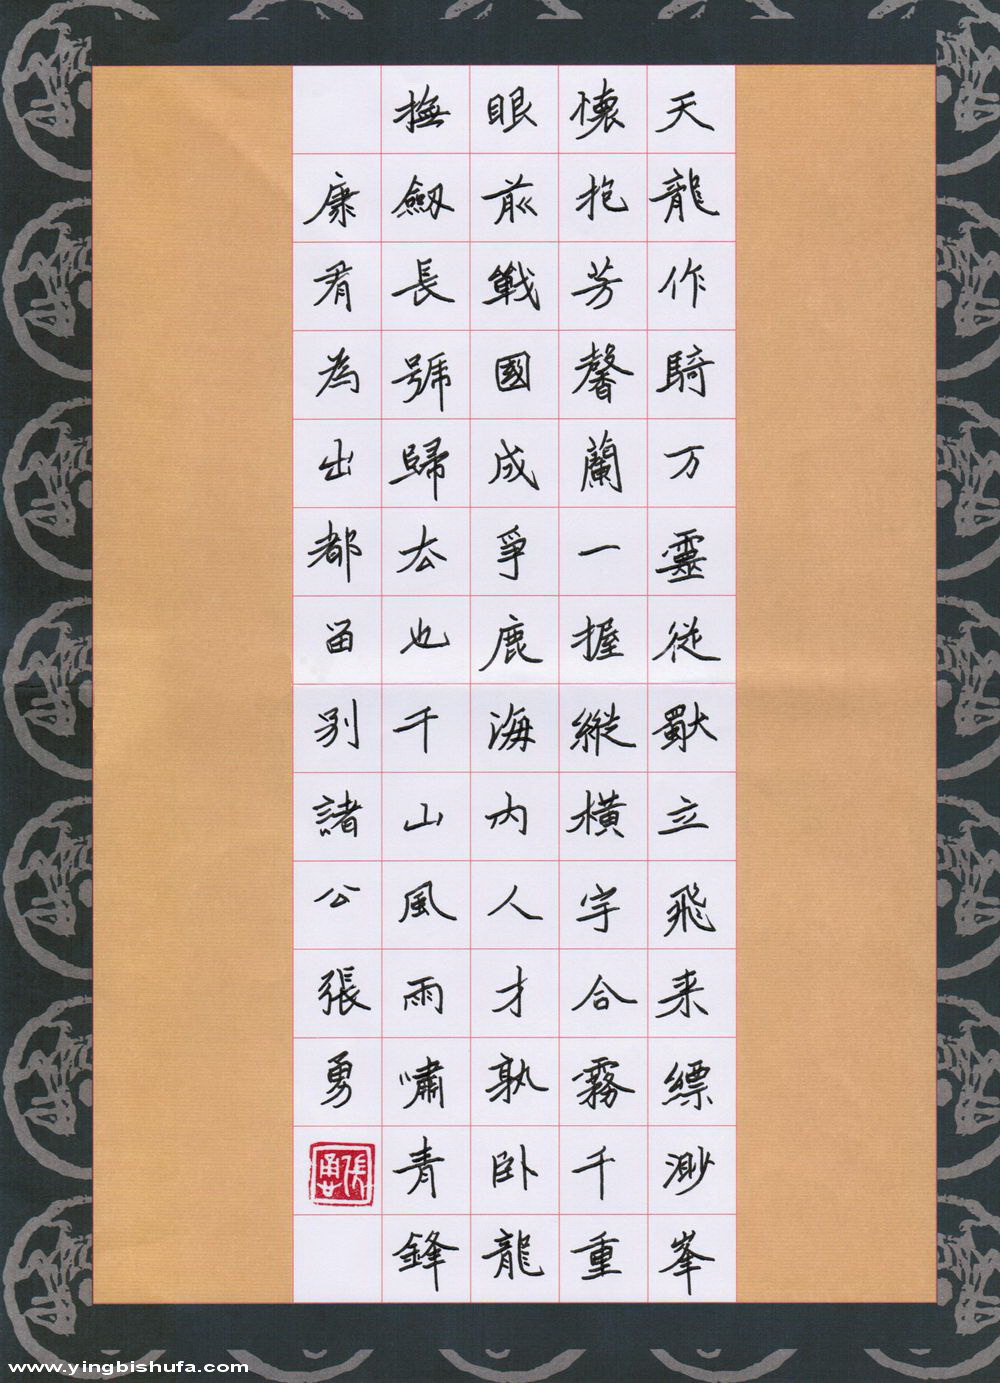 天龍作騎万靈從獨立飛来縹渺峯
懷抱芳馨蘭一握縱橫宇合霧千重
眼前戰國成爭鹿海内人才孰卧龍
撫劒長號歸去也千山風雨嘯青鋒
康有為出都留別諸公張勇
www.yingbishufa.com